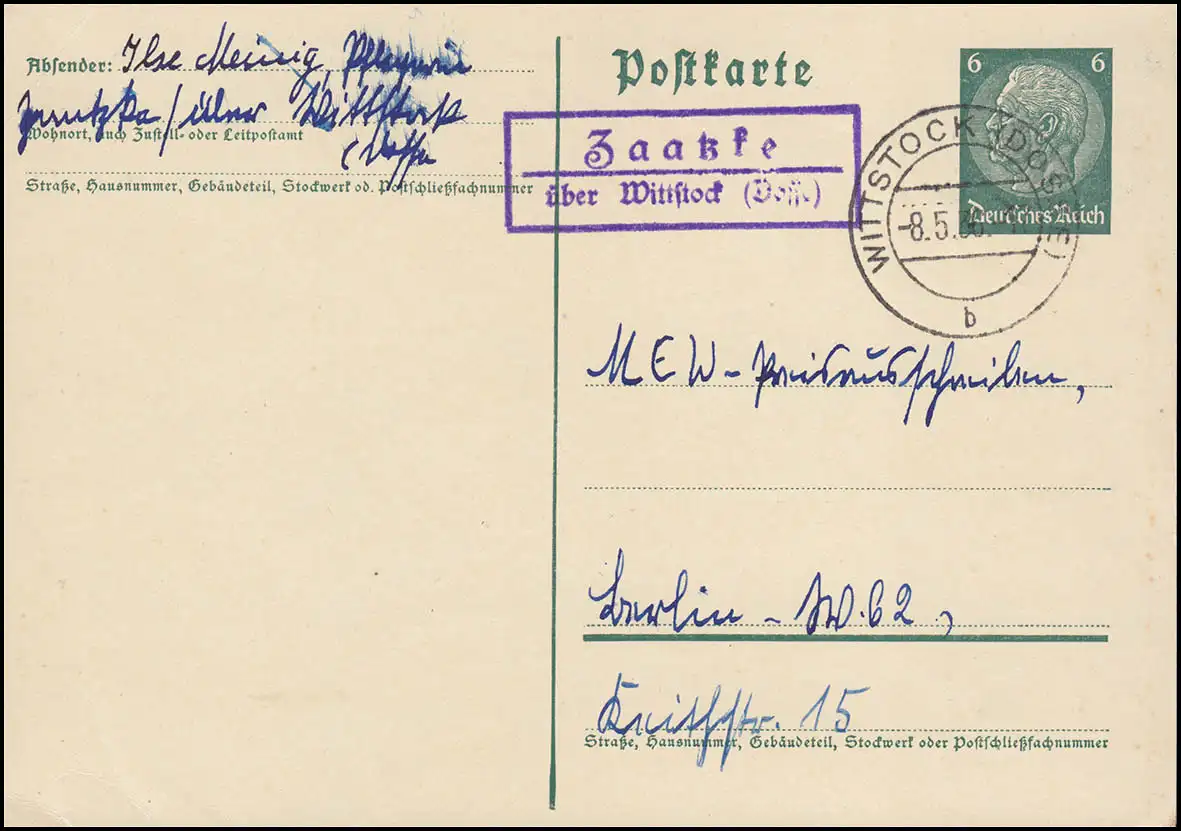 Absender: Ilse Meinig,
Zaatzke / über Wittstock
Wohnort, auch Zustell- oder Leitpostamt
(Dosse
Straße, Hausnummer, Gebäudeteil, Stockwerk od. Postschließfachnummer
Postkarte
Zaatzke
über Wittstock (Dosse)
6 6
Deutsches Reich
WITTSTOCK (DOSSE)
-8.5.36.
b
MEW-Preisausschreiben,
Berlin - W. 62,
Keithstr. 15
Straße, Hausnummer, Gebäudeteil, Stockwerk oder Postschließfachnummer